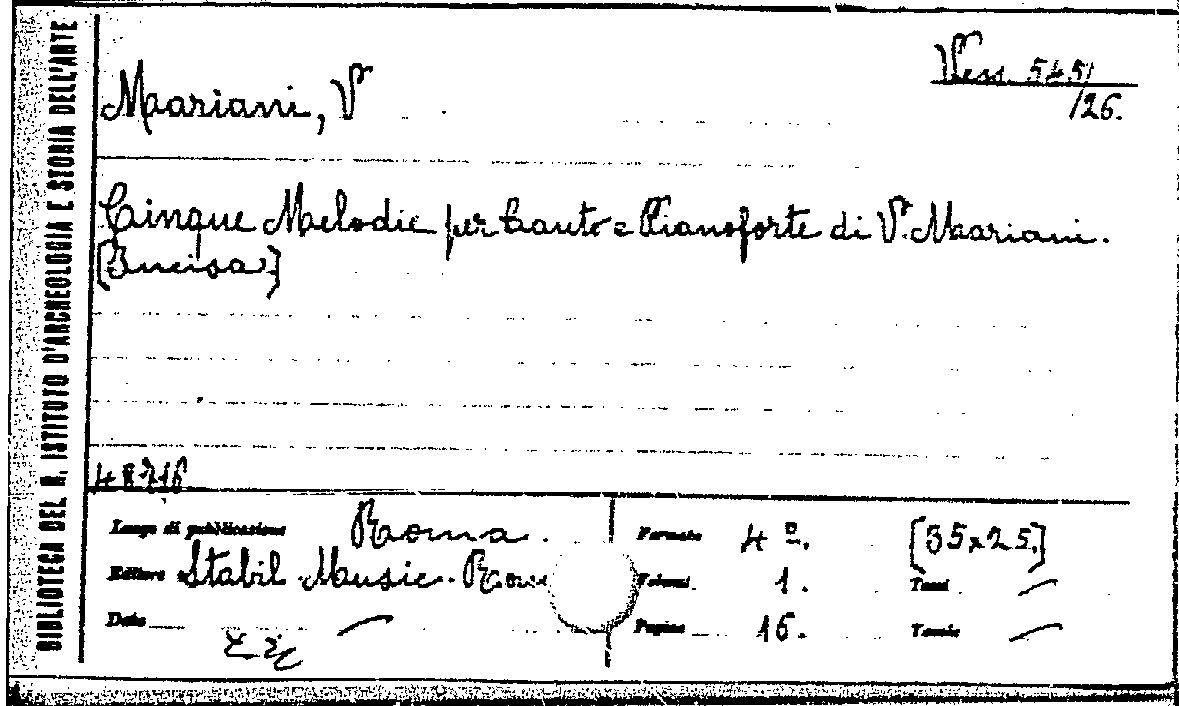 BIBLIOTECA DEL R. ISTITUTO D'ARCHEOLOGIA E STORIA DELL'ARTE
Mariani, V
Vess. 545/
/26.
Cinque Melodie per Canto e Pianoforte di V. Mariani.
[Incisa]
Luogo di pubblicazione Roma.
Formato 4º. [35x25.]
Editore Stabil Music. Rom
Volumi 1. Tomi —
Data —
Pagine 16. Tavole —